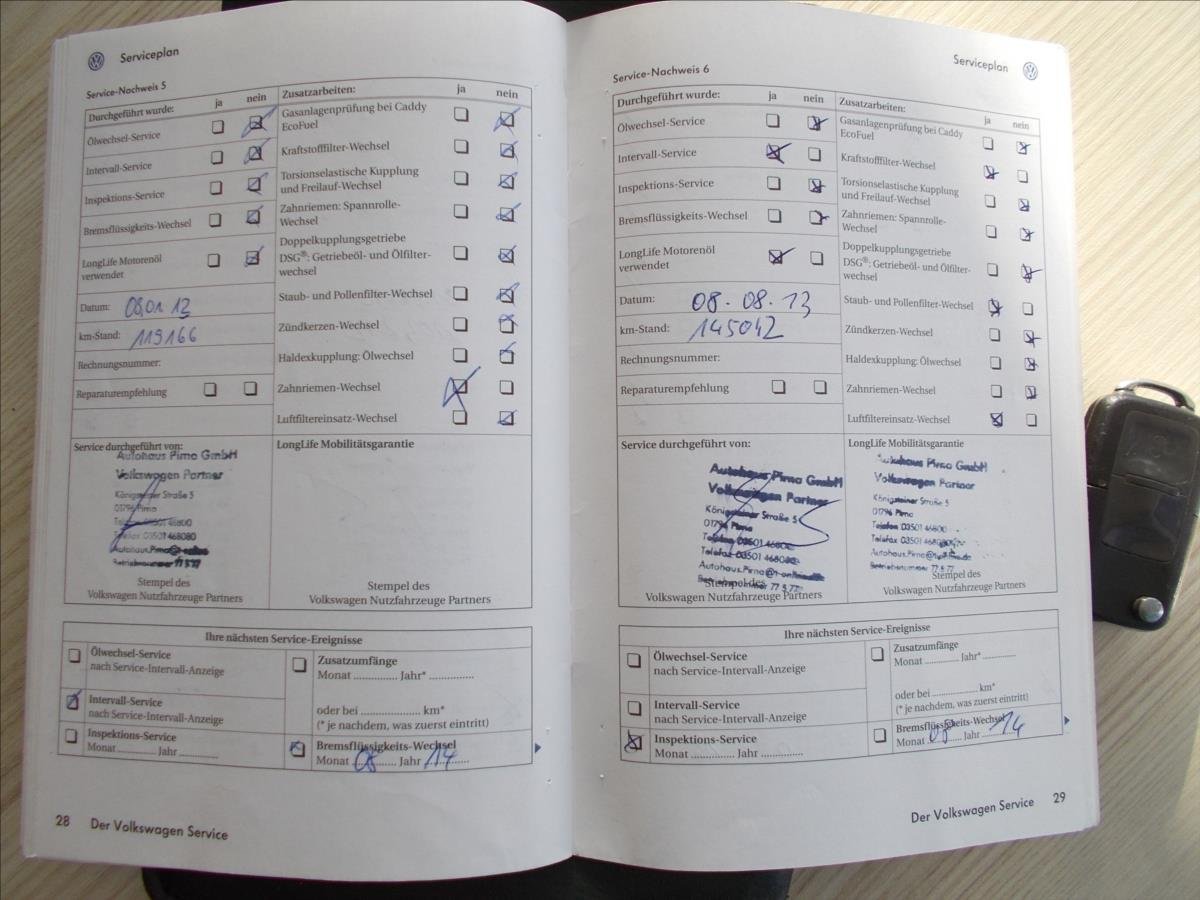 Serviceplan
Service-Nachweis 5
Durchgeführt wurde: ja nein
Ölwechsel-Service
Intervall-Service
Inspektions-Service
Bremsflüssigkeits-Wechsel
LongLife Motorenöl
verwendet
Datum: 08.01.13
km-Stand: 119166
Rechnungsnummer:
Reparaturempfehlung
Zusatzarbeiten: ja nein
Gasanlagenprüfung bei Caddy
EcoFuel
Kraftstofffilter-Wechsel
Torsionselastische Kupplung
und Freilauf-Wechsel
Zahnriemen: Spannrolle-
Wechsel
Doppelkupplungsgetriebe
DSG®: Getriebeöl- und Ölfilter-
wechsel
Staub- und Pollenfilter-Wechsel
Zündkerzen-Wechsel
Haldexkupplung: Ölwechsel
Zahnriemen-Wechsel
Luftfiltereinsatz-Wechsel
Service durchgeführt von:
Autohaus Pirna GmbH
Volkswagen Partner
Königsteiner Straße 5
01796 Pirna
Telefon 03501 46800
Telefax 03501 468080
Stempel des
Volkswagen Nutzfahrzeuge Partners
LongLife Mobilitätsgarantie
Stempel des
Volkswagen Nutzfahrzeuge Partners
Ihre nächsten Service-Ereignisse
Ölwechsel-Service
nach Service-Intervall-Anzeige
Intervall-Service
nach Service-Intervall-Anzeige
Inspektions-Service
Monat ............ Jahr ............
Zusatzumfänge
Monat ............ Jahr* ............
oder bei ................ km*
(* je nachdem, was zuerst eintritt)
Bremsflüssigkeits-Wechsel
Monat 08 Jahr 14
28 Der Volkswagen Service
Serviceplan
Service-Nachweis 6
Durchgeführt wurde: ja nein
Ölwechsel-Service
Intervall-Service
Inspektions-Service
Bremsflüssigkeits-Wechsel
LongLife Motorenöl
verwendet
Datum: 08.08.13
km-Stand: 145042
Rechnungsnummer:
Reparaturempfehlung
Zusatzarbeiten: ja nein
Gasanlagenprüfung bei Caddy
EcoFuel
Kraftstofffilter-Wechsel
Torsionselastische Kupplung
und Freilauf-Wechsel
Zahnriemen: Spannrolle-
Wechsel
Doppelkupplungsgetriebe
DSG®: Getriebeöl- und Ölfilter-
wechsel
Staub- und Pollenfilter-Wechsel
Zündkerzen-Wechsel
Haldexkupplung: Ölwechsel
Zahnriemen-Wechsel
Luftfiltereinsatz-Wechsel
Service durchgeführt von:
Autohaus Pirna GmbH
Volkswagen Partner
Königsteiner Straße 5
01796 Pirna
Telefon 03501 46800
Telefax 03501 468080
Stempel des
Volkswagen Nutzfahrzeuge Partners
LongLife Mobilitätsgarantie
Autohaus Pirna GmbH
Volkswagen Partner
Königsteiner Straße 5
01796 Pirna
Telefon 03501 46800
Telefax 03501 468080
Stempel des
Volkswagen Nutzfahrzeuge Partners
Ihre nächsten Service-Ereignisse
Ölwechsel-Service
nach Service-Intervall-Anzeige
Intervall-Service
nach Service-Intervall-Anzeige
Inspektions-Service
Monat ............ Jahr ............
Zusatzumfänge
Monat ............ Jahr* ............
oder bei ................ km*
(* je nachdem, was zuerst eintritt)
Bremsflüssigkeits-Wechsel
Monat 08 Jahr 14
Der Volkswagen Service 29